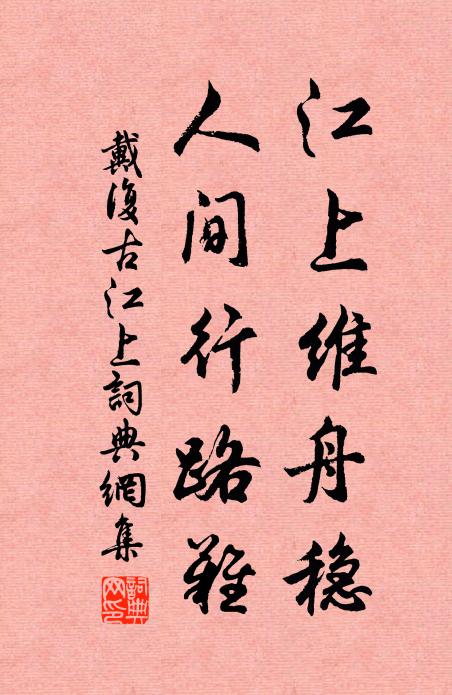 江上维舟稳
人间行路难
戴復古江上詞典網集
詞典网印